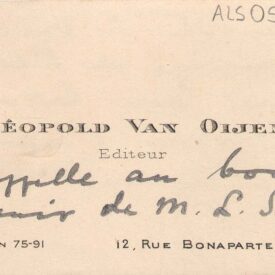 ALS OS
ÉOPOLD VAN OIJEN
Editeur
ppelle au bo
nir de M. L. S
N 75-91 12, RUE BONAPARTE